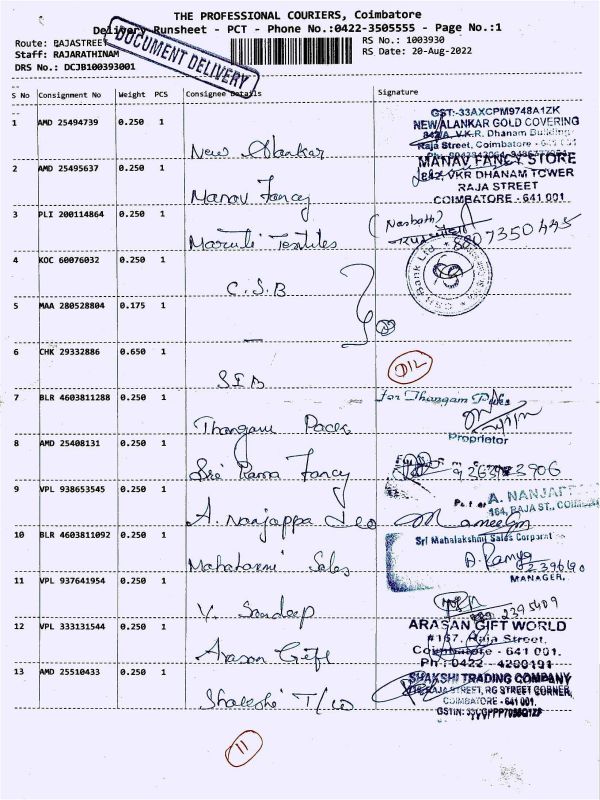 THE PROFESSIONAL COURIERS, Coimbatore
Delivery Runsheet - PCT - Phone No.:0422-3505555 - Page No.:1
Route: RAJASTREET
RS No.: 1003930
Staff: RAJARATHINAM
RS Date: 20-Aug-2022
DRS No.: DCJB100393001
DOCUMENT DELIVERY
S No Consignment No Weight PCS Consignee Details Signature
1 AMD 25494739 0.250 1 New Alankar
GST:-33AXCPM9748A1ZK
NEW ALANKAR GOLD COVERING
V.K.R. Dhanam Building
Raja Street, Coimbatore - 641 001
2 AMD 25495637 0.250 1 Manav Fancy
MANAV FANCY STORE
VKR DHANAM TOWER
RAJA STREET
COIMBATORE - 641 001
3 PLI 200114864 0.250 1 Maruti Textiles
8807350445
4 KOC 60076032 0.250 1 C.S.B
CSB Bank Ltd
5 MAA 280528804 0.175 1 —
6 CHK 29332886 0.650 1 SIB
D12
7 BLR 4603811288 0.250 1 Thangam Pack
For Thangam
Proprietor
8 AMD 25408131 0.250 1 Sri Rama Fancy
9 VPL 938653545 0.250 1 A. Nanjappa Leo
A. NANJAPP
164, RAJA ST., COIMB
10 BLR 4603811092 0.250 1 Mahalaxmi Sales
Sri Mahalakshmi Sales Corporat
A. Ramya
MANAGER.
11 VPL 937641954 0.250 1 V. Sandeep
2395409
12 VPL 333131544 0.250 1 Arasan Gift
ARASAN GIFT WORLD
Raja Street,
Coimbatore - 641 001.
Ph: 0422 - 4200191
13 AMD 25510433 0.250 1 Shakshi T/co
SHAKSHI TRADING COMPANY
RAJA STREET, RG STREET CORNER
COIMBATORE - 641 001.
11